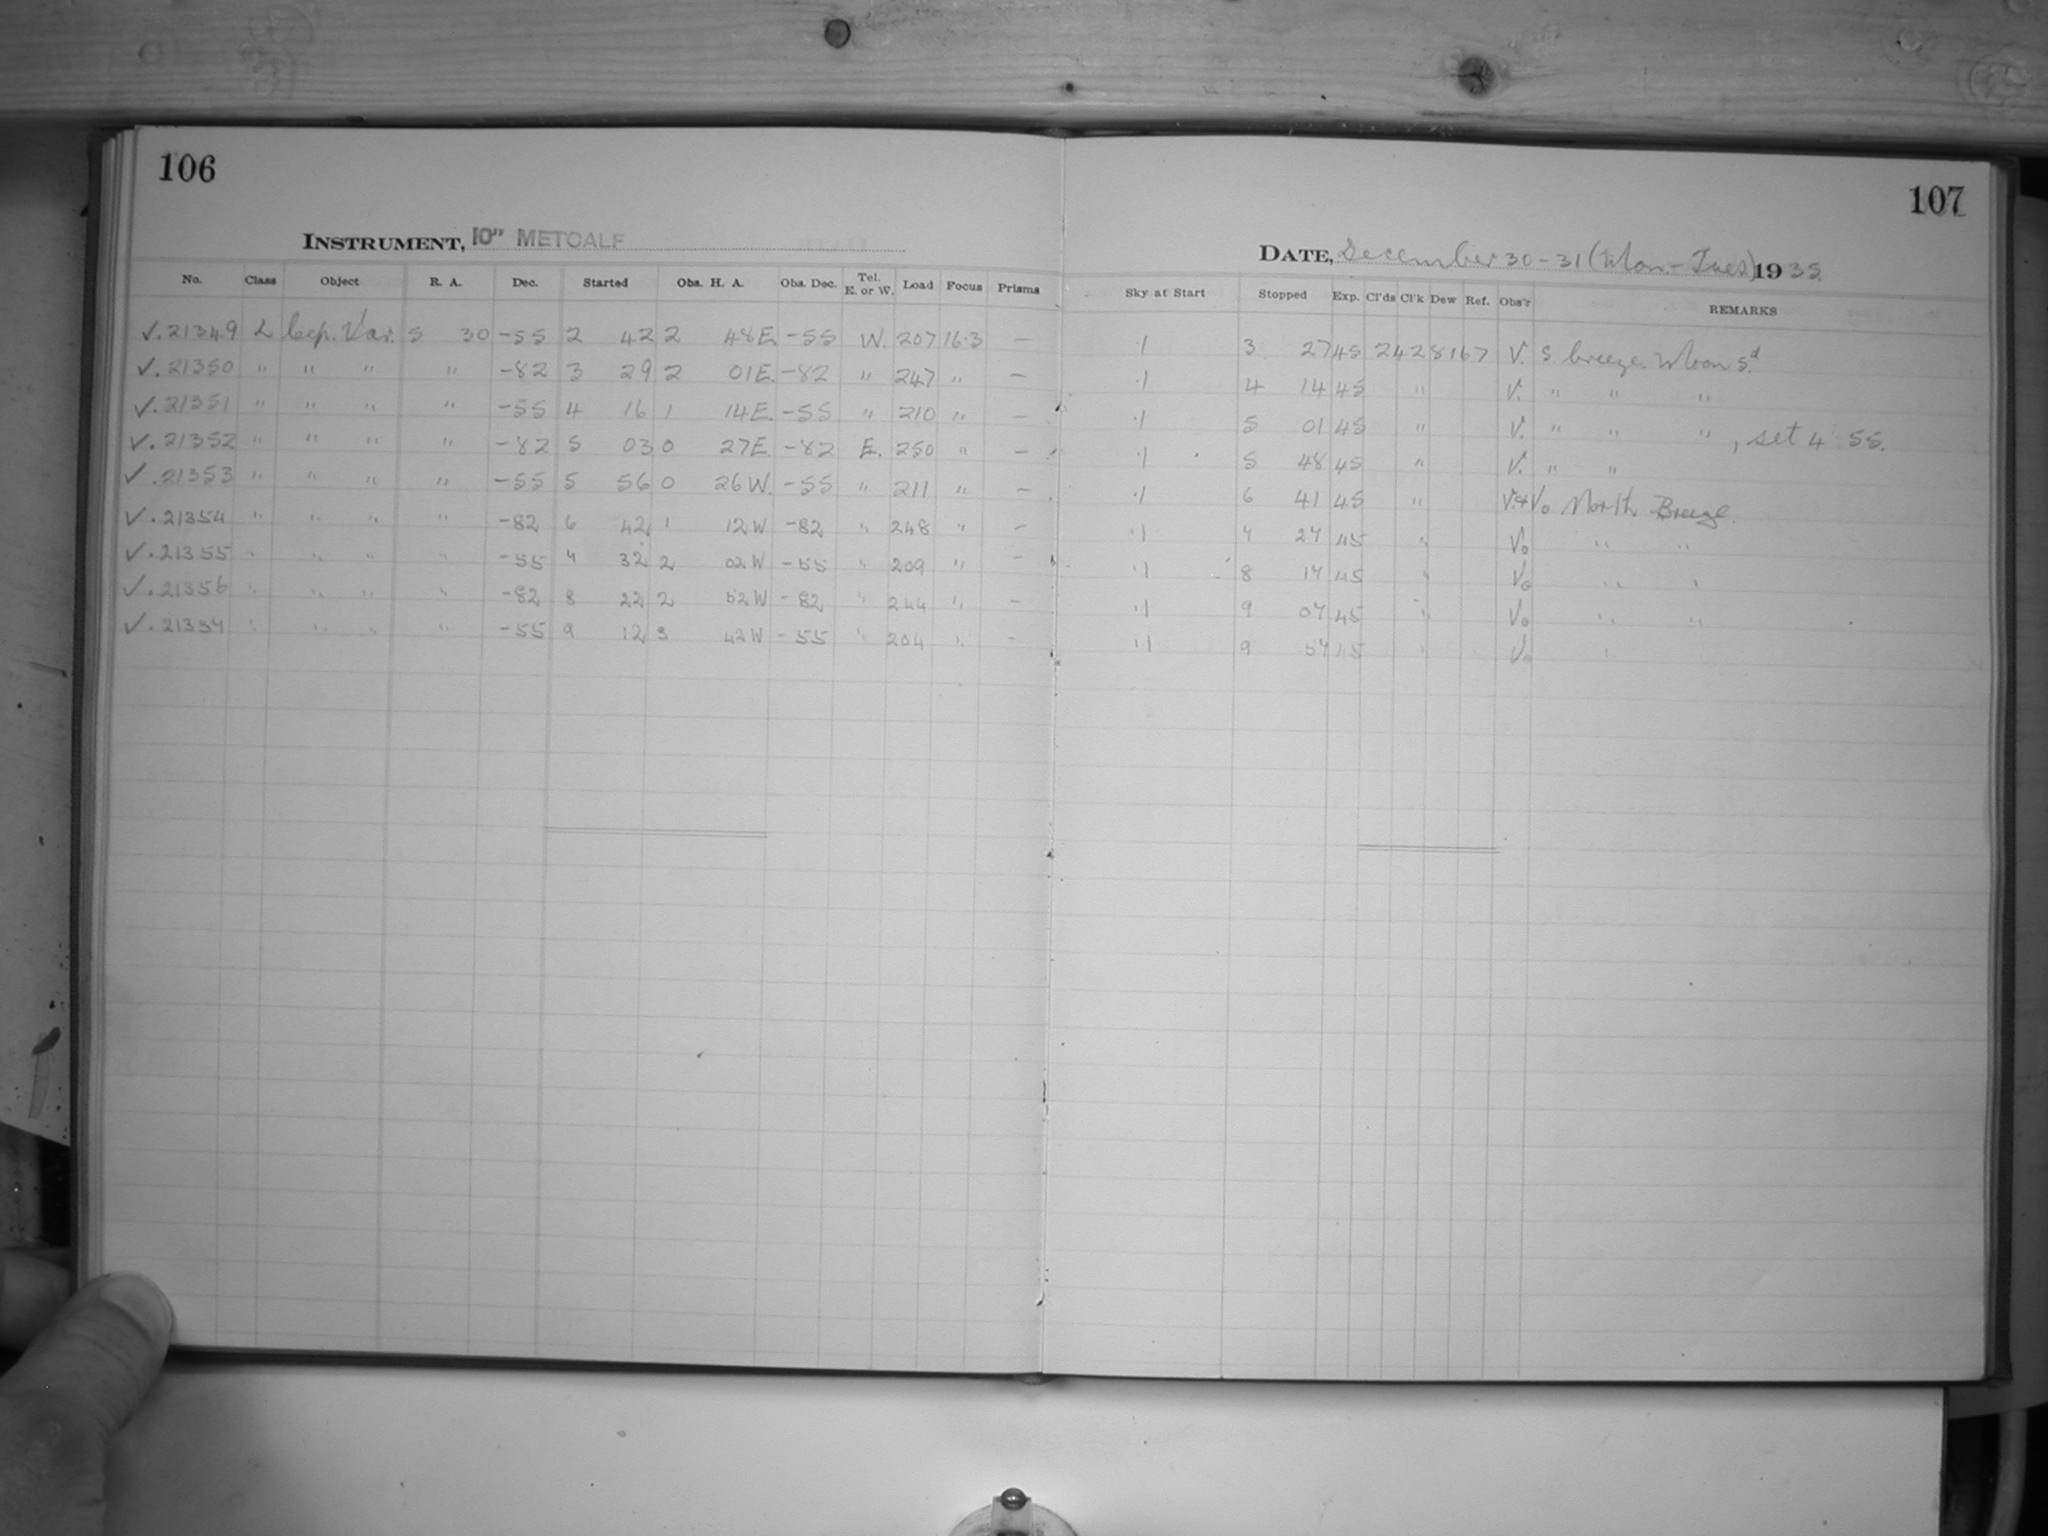 106
107
INSTRUMENT, 10" METCALF
DATE, December 30-31 (Mon.-Tues) 1935
No. Class Object R. A. Dec. Started Obs. H. A. Obs. Dec. Tel. E. or W. Load Focus Prisms Sky at Start Stopped Exp. Cl'ds Cl'k Dew Ref. Obs'r REMARKS
V. 21349 L Cep. Var. 5 30 -55 2 42 2 48E -55 W. 207 16.3 — .1 3 27 45 24 28 167 V. S. breeze. Moon sd.
V. 21350 " " " " -82 3 29 2 01E. -82 " 247 " — .1 4 14 45 " V. " " "
V. 21351 " " " " -55 4 16 1 14E. -55 " 210 " — .1 5 01 45 " V. " " " , set 4 55.
V. 21352 " " " " -82 5 03 0 27E. -82 E. 250 " — .1 5 48 45 " V. " "
V. 21353 " " " " -55 5 56 0 26W. -55 " 211 " — .1 6 41 45 " V.+Vo North Breeze.
V. 21354 " " " " -82 6 42 1 12W -82 " 248 " — .1 7 27 45 " Vo " "
V. 21355 " " " " -55 7 32 2 02W -55 " 209 " — .1 8 17 45 " Vo " "
V. 21356 " " " " -82 8 22 2 52W -82 " 244 " — .1 9 07 45 " Vo " "
V. 21357 " " " " -55 9 12 3 42W -55 " 204 " — .1 9 57 45 " Vo "